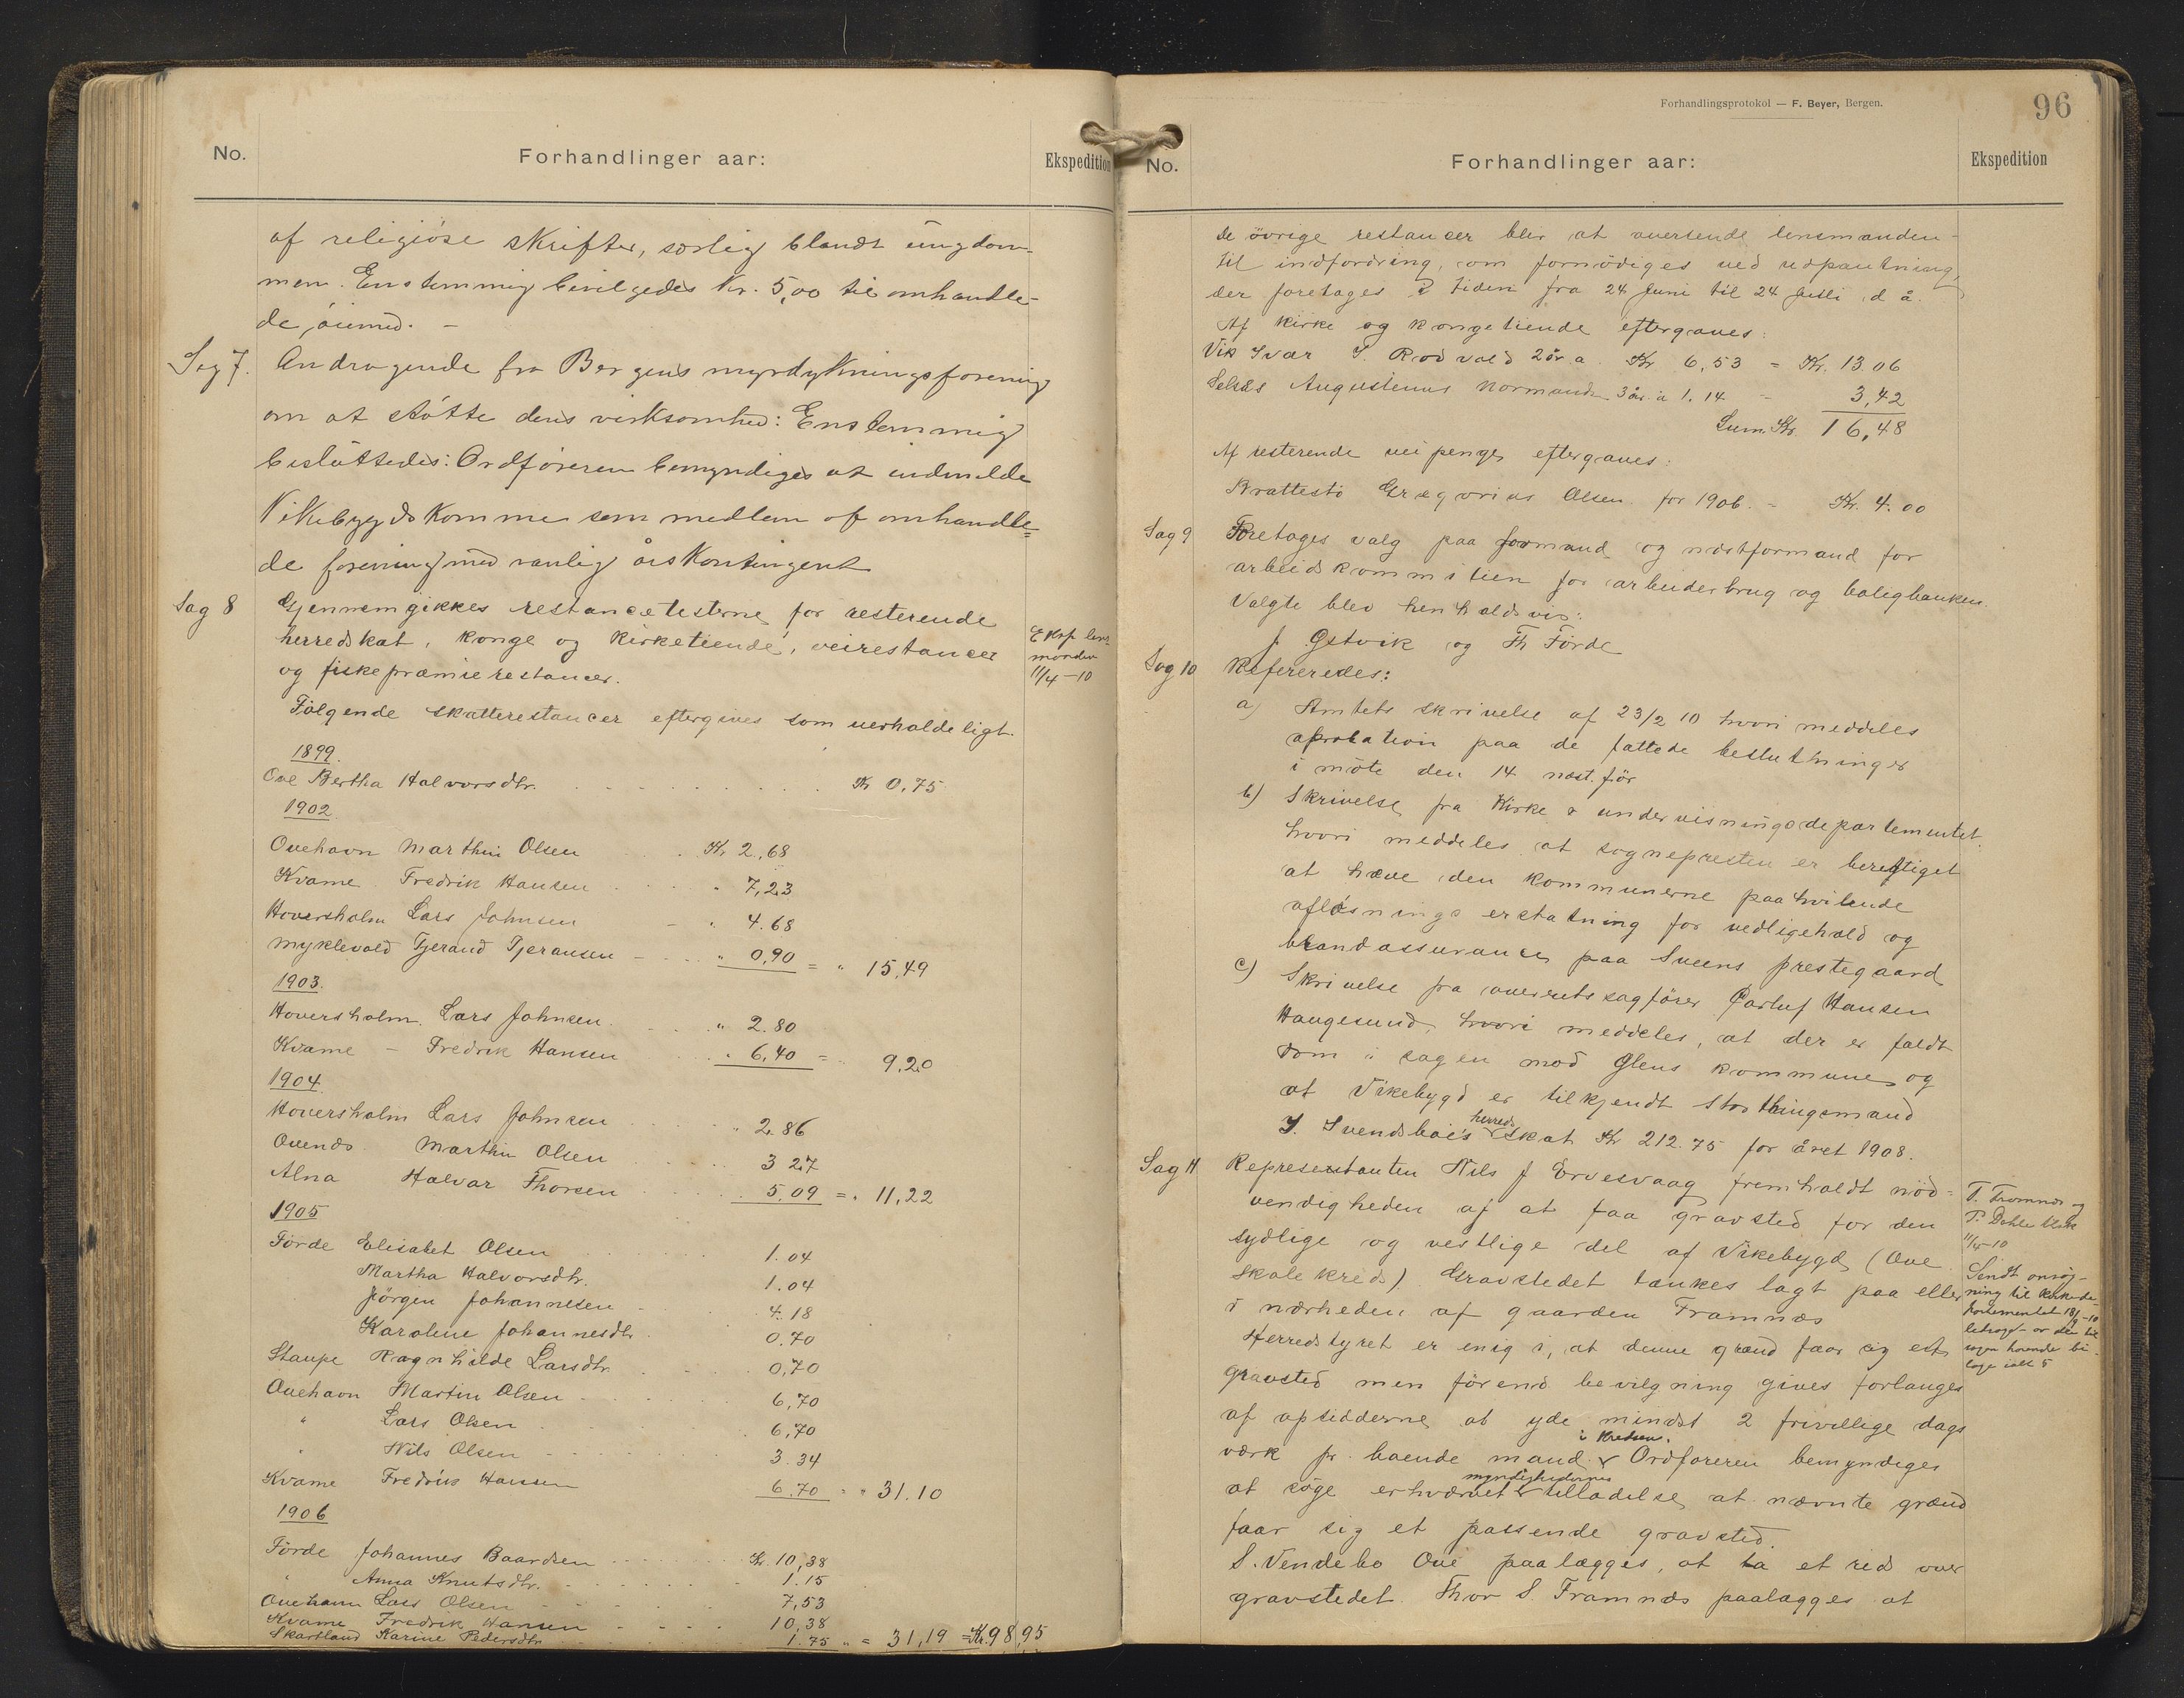 No.
Forhandlinger aar:
Ekspedition
af religiöse skrifter, særlig blandt ungdom-
men. Enstemmig bevilgedes Kr. 5,00 til omhandle-
de öiemed. –
Sag 7. Andragende fra Bergens myrdyrkningsforening
om at stötte deris virksomhed: Enstemmig
besluttedes: Ordföreren bemyndiges at indmelde
Vikebygds Komme som medlem af omhandle=
de forening med vanlig årskontingent
Sag 8 Gjennemgikkes restancelisterne for resterende
herredskat, konge og kirketiende, veirestancer
og fiskepræmierestancer.
Eksp lens-
manden
11/4 – 10
Fölgende skatterestancer eftergives som uerholdeligt.
1899.
Ove Bertha Halvorsdtr. Kr 0,75
1902
Ovehavn Marthin Olsen Kr 2,68
Kvame Fredrik Hansen " 7,23
Hoversholm Lars Johnsen – " 4.68
Myklevold Tjerand Tjeransen – " 0,90 = " 15,49
1903.
Hoversholm. Lars Johnsen. " 2.80
Kvame – Fredrik Hansen " 6,40 = " 9,20
1904.
Hoversholm Lars Johnsen " 2.86
Ovenæs Marthin Olsen 3 27
Alna Halvar Thorsen 5.09 = " 11,22
1905
Förde Elisabet Olsen 1.04
Martha Halvorsdtr. 1.04
Jörgen Johannesen – 4.18
Karoline Johannesdtr. 0.70
Staupe Ragnhilde Larsdtr. 0,70
Ovehavn Martin Olsen – 6,70
" Lars Olsen 6,70
" Nils Olsen – 3.34
Kvame Fredrik Hansen 6.70 = " 31.10
1906
Förde Johannes Baardsen Kr. 10,38
" Anna Knutsdtr. – 1.15
Ovehavn Lars Olsen 7,53
Kvame Fredrik Hansen 10,38
Skartland Karine Pedersdtr 1.75 " = 31,19 =Kr. 98,95
Forhandlingsprotokol — F. Beyer, Bergen.
96
No.
Forhandlinger aar:
Ekspedition
de övrige restancer blir at oversende lensmanden –
til indfordring, om fornödiges ved udpantning,
der foretages i tiden fra 24 Juni til 24 Juli d å.
Af kirke og kongetiende eftergaves:
Vik Ivar I. Rödvold 2 år a Kr 6,53 = Kr. 13.06
Selsås Augustinus Normand 3 år. à 1.14 – 3,42
Sum. Kr. 16,48
Af resterende veipenge eftergaves:
Brattestö Gregorius Olsen for 1906. – Kr. 4.00
Sag 9 Foretages valg paa formand og næstformand for
arbeidskommitieen for arbeiderbrug og boligbanken.
Valgte blev henholdsvis:
J. Ostvik og Th Förde
Sag 10 Refereredes:
a) Amtets skrivelse af 23/2 10 hvori meddeles
aprobation paa de fattede beslutninger
i möte den 14 næst. för
b) Skrivelse fra Kirke & undervisningsdepartementet.
hvori meddeles at sognepresten er berettiget
at hæve den kommunerne paahvilende
aflösnings erstatning for vedligehold og
brandassurance paa Sveens prestegaard
c) Skrivelse fra overretssagförer Carluf Hansen
Haugesund, hvori meddeles, at der er faldt
dom i sagen mod Ølens kommune og
at Vikebygd er tilkjendt storthingsmand
I. Svendsböe's herredsskat Kr 212.75 for året 1908.
Sag 11 Representanten Nils J Ervesvaag fremholdt nöd-
vendigheden af at faa gravsted for den
sydlige og vestlige del af Vikebygd (Ove
skolekreds). Gravstedet tænkes lagt paa eller
i nærheden af gaarden Framnæs
T. Framnes og
11/4-10
Sendt ansög-
ning til Kirkede-
partementet
Herredstyret er enig i, at denne grænd faar sig et
gravsted men förend bevilgning gives forlanges
af opsidderne at yde mindst 2 frivillige dags
værk pr. boende mand i Kredsen. Ordföreren bemyndiges
at söge erhvervet myndighedernes tilladelse at nævnte grænd
faar sig et passende gravsted.
S. Vendebo Ove paalægges, at ta et rids over
gravstedet. Thor S. Framnæs paalægges at